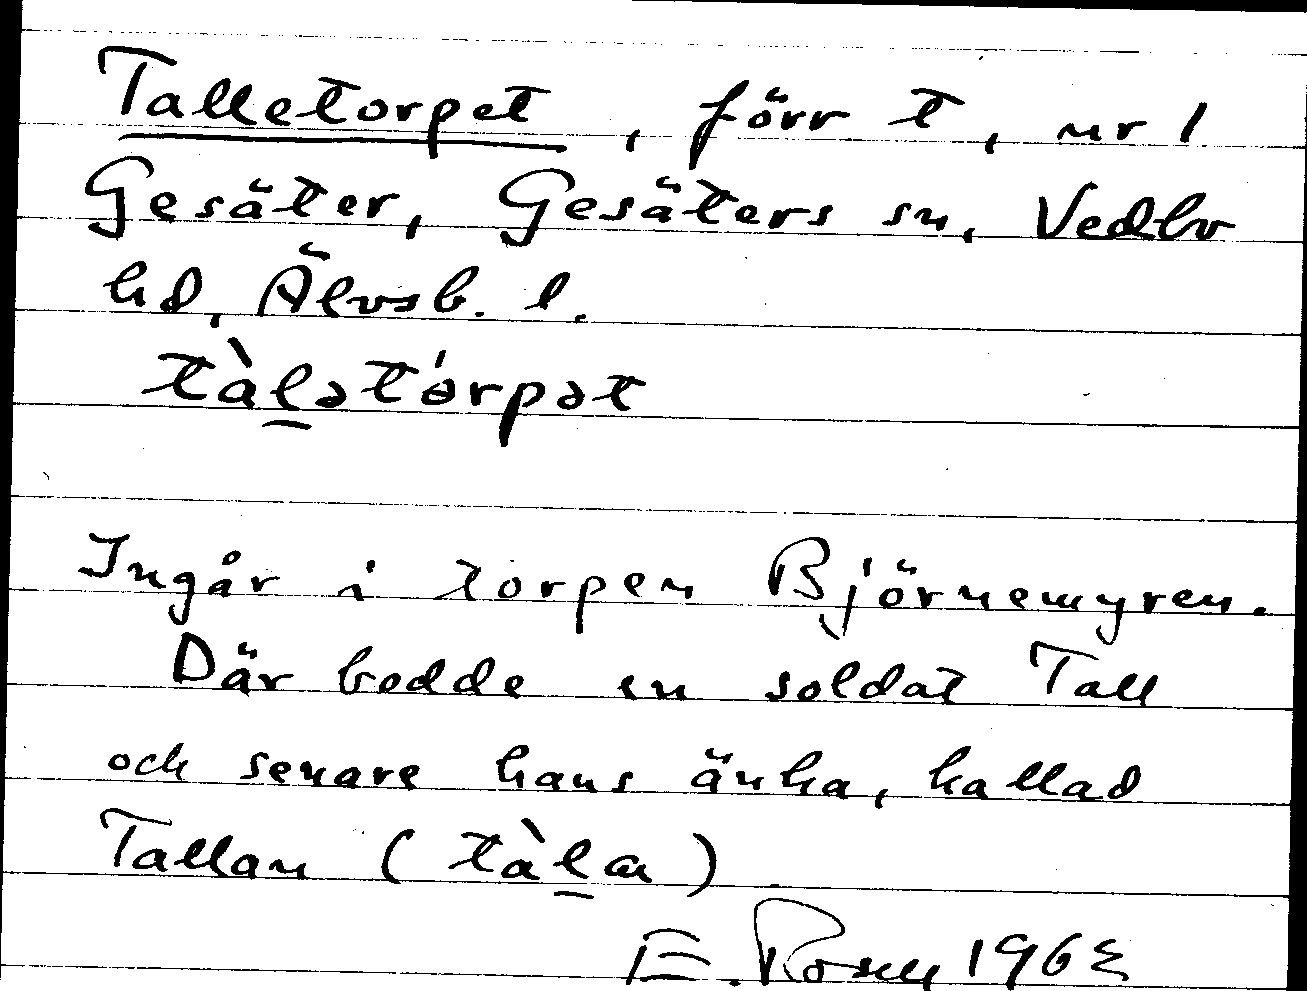 Talletorpet, förr t, nr 1
Gesäter, Gesäters sn, Vedbo
hd, Älvsb. l.
tàl̠ətórpət
Ingår i torpen Björnemyren.
Där bodde en soldat Tall
och senare hans änka, kallad
Tallan (tàl̠a)
E. Rosen 196